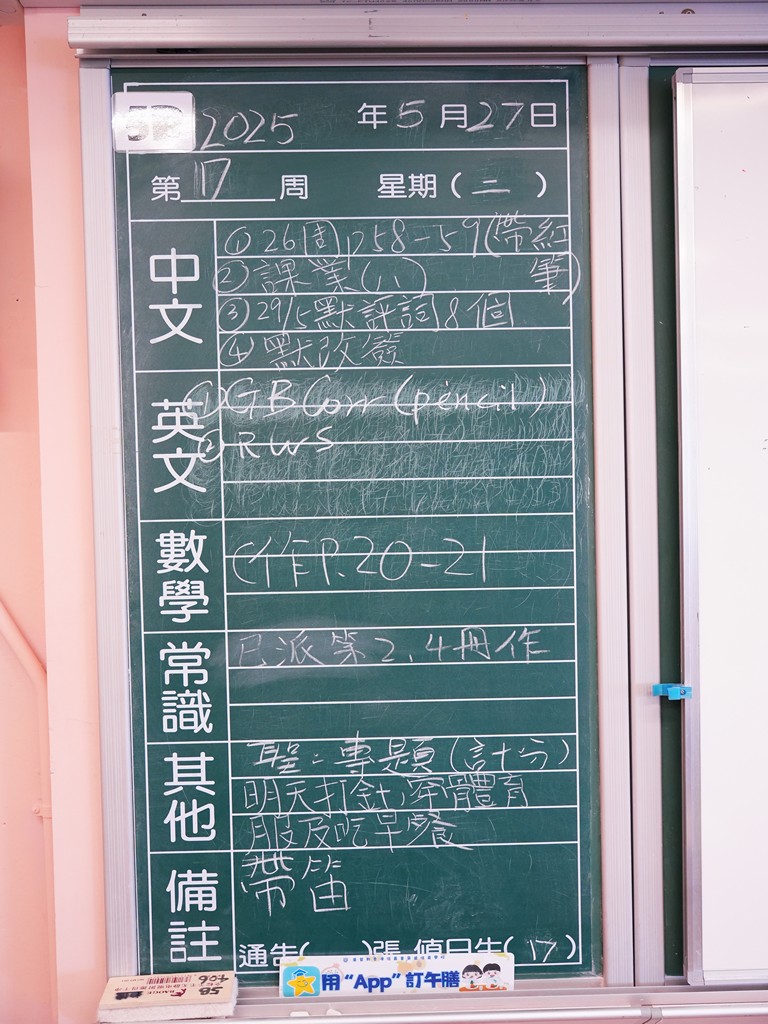 5B
2025 年5月27日
第 17 周 星期(二)
中文
① 26周 P58-59(帶紅
② 課業(八) 筆)
③ 29/5默評詞8個
④ 默改
英文
① GB Corr (pencil)
② RWS
數學
作P.20-21
常識
已派第2、4冊作
其他
聖:專題(計分)
明天打針,穿體育
服及吃早餐
備註
帶笛
通告( )張 值日生(17)
用“App”訂午膳
5B
406